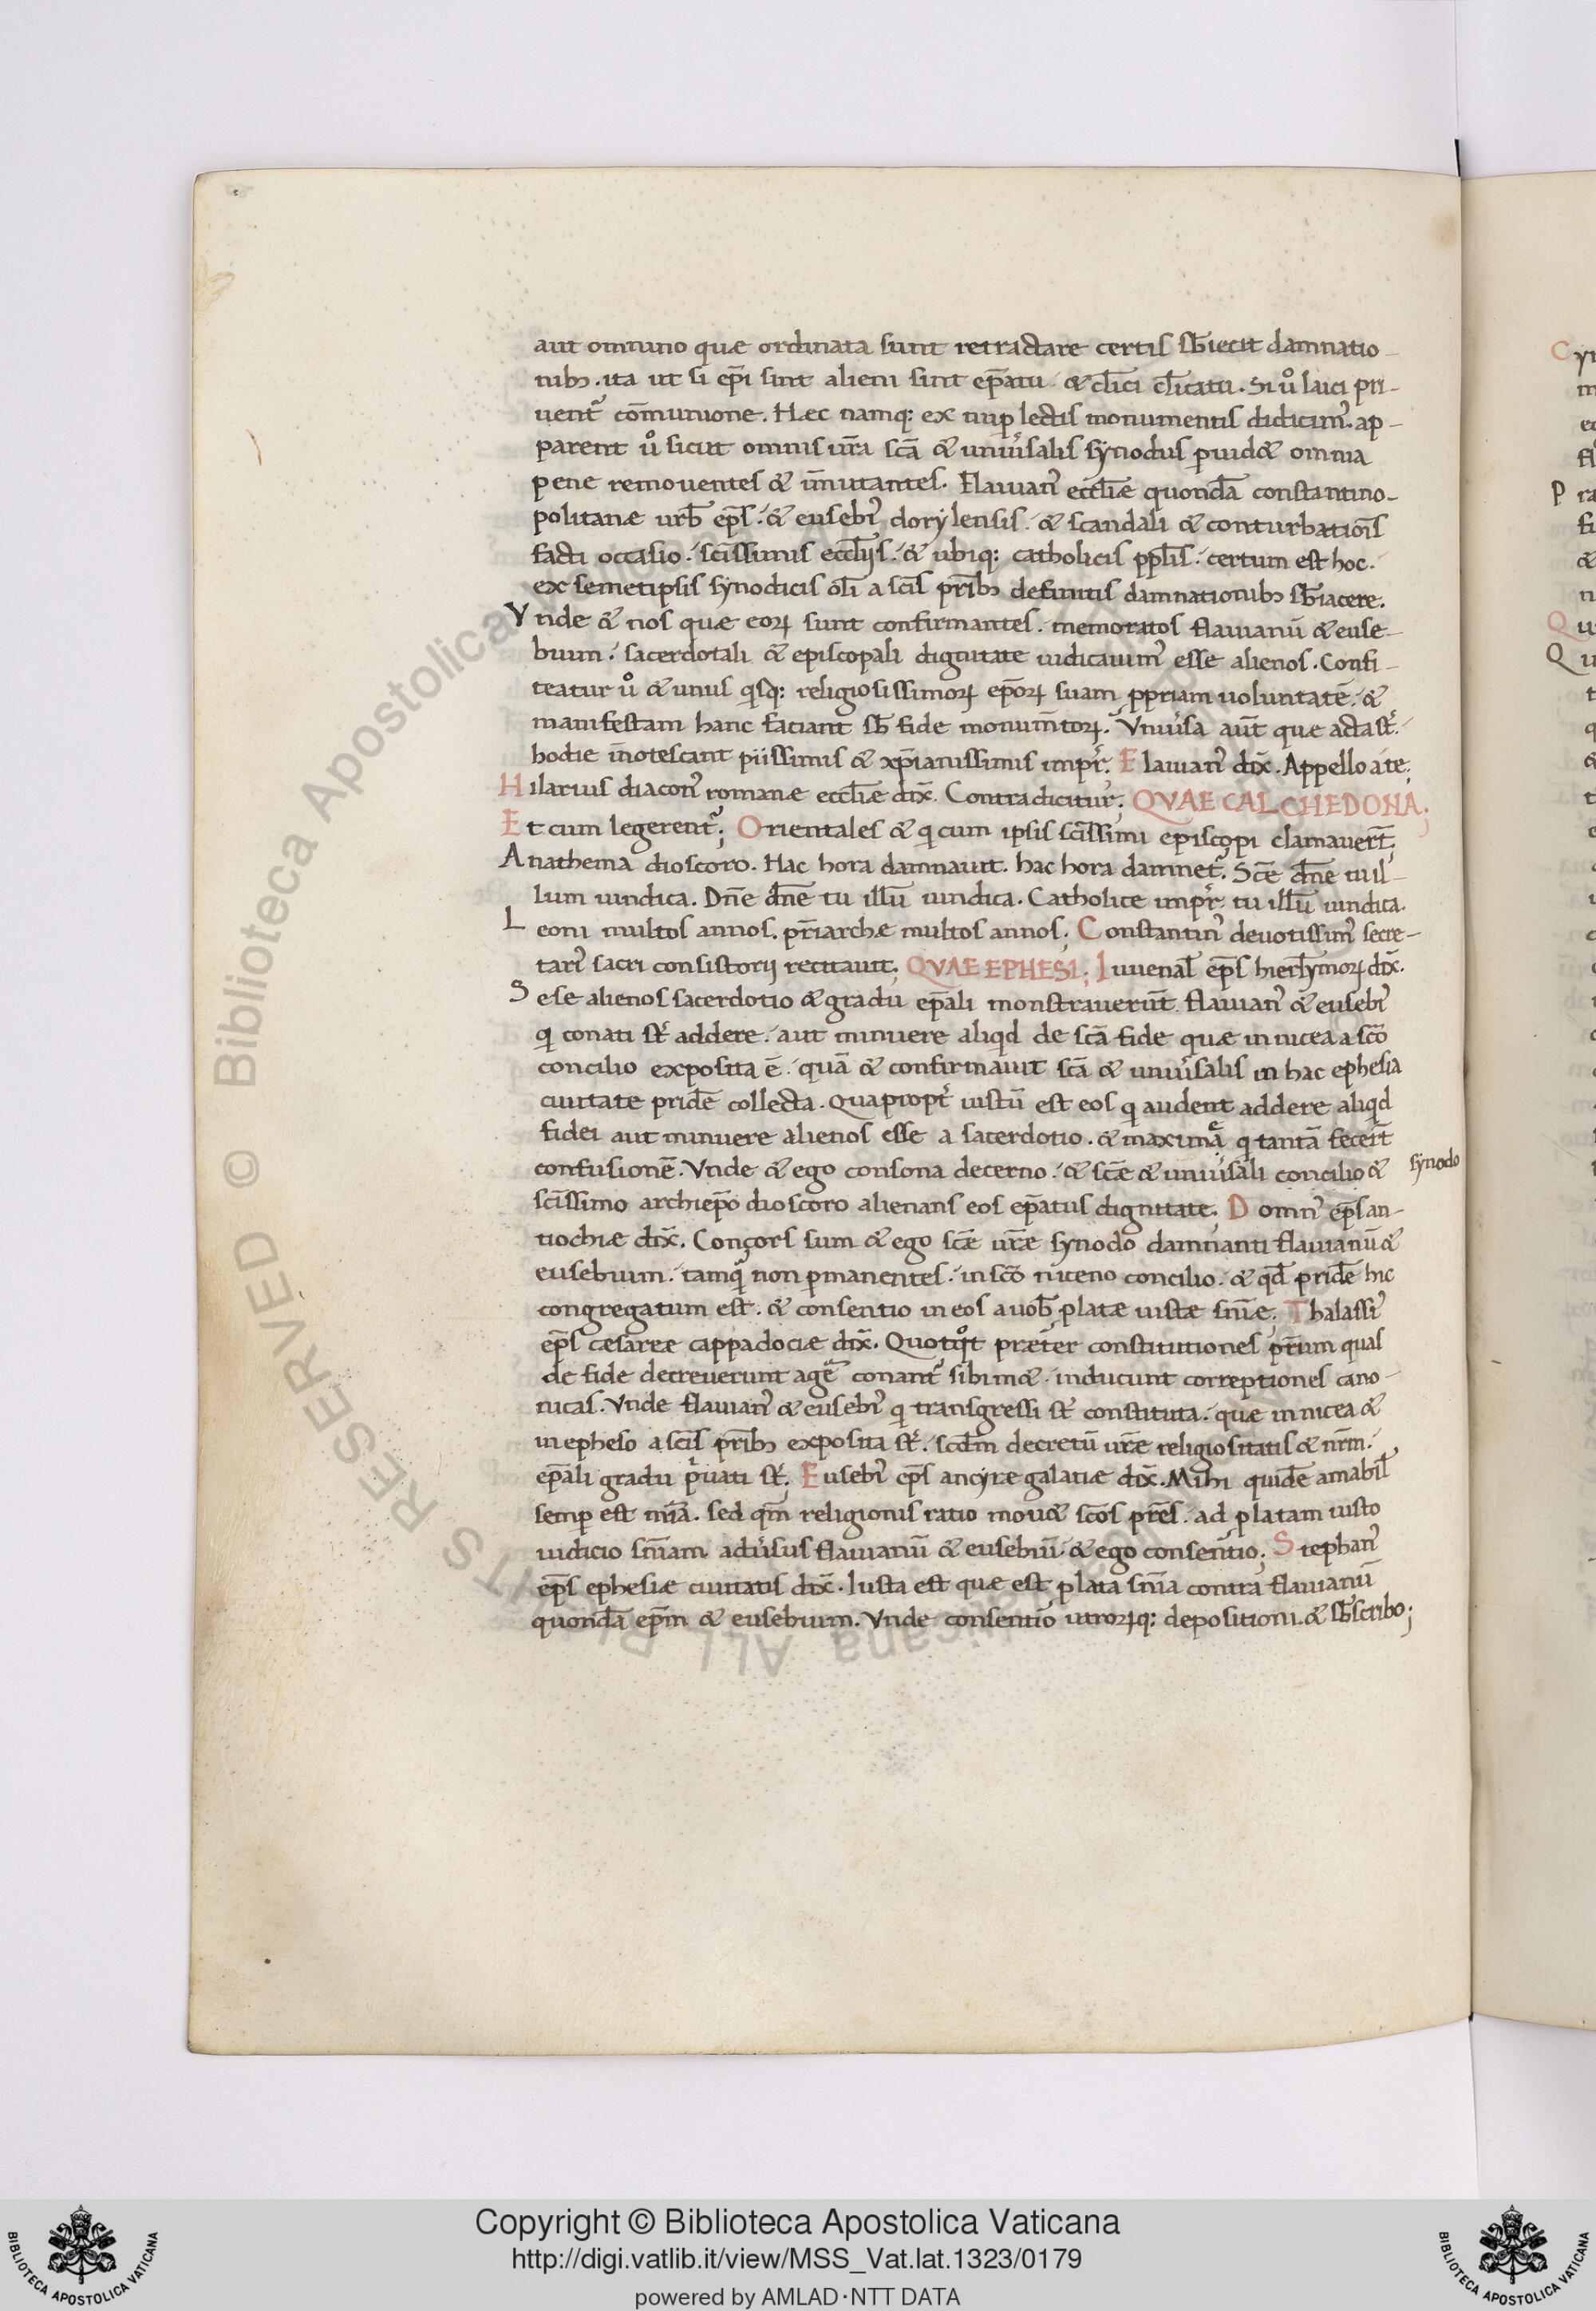 aut omnino quæ ordinata sunt retractare certis sb̄iecit damnatio-
nibꝫ. ita ut si ep̄i sint alieni sint ep̄atu & cl̄ici cl̄icatu. Si uo᷎ laici pri-
uent᷑ com̄unione. Hęc namq: ex nup lectis monumentis didicim᷒. ap-
parent uo᷎ sicut omnis ur̄a sc̄a & uniu᷑salis synodus puid& omnia
pene remouentes & im̄utantes. Flauian᷒ eccl̄iæ quondā constantino-
politanæ urb̄ ep̄s. & eusebi᷒ dorylensis. & scandali & conturbation̄s
facti occasio. sc̄issimis eccl̄iis. & ubiq: catholicis ppl̄is. certum est hoc.
ex semetipsis synodicis ol̄i a sc̄is prīb; definitis damnationibꝫ sb̄iacere.
Vnde & nos quæ eoꝝ sunt confirmantes. memoratos flauianū & euse-
bium. sacerdotali & episcopali dignitate iudicauim᷒ esse alienos. Confi-
teatur uo᷎ & unus qisq: religiosissimoꝝ ep̄oꝝ suam ppriam uoluntatē. &
manifestam hanc faciant sb̄ fide monum̄toꝝ. Vniu᷑sa aut̄ que acta st᷑.
hodie in̄otescant piissimis & xp̄ianissimis imp̄r. Flauian᷒ dix̄. Appello a te;
Hilarius diacon᷒ romanæ eccl̄iæ dix̄. Contradicitur; QVAE CALCHEDONA;
Et cum legerent᷑; Orientales & qi cum ipsis sc̄issimi episcopi clamauert̄;
Anathema dioscoro. Hac hora damnauit. hac hora damnet᷑. Sc̄e dn̄e tu il-
lum uindica. Dn̄e dn̄e tu illū uindica. Catholice imp̄r tu illū uindica.
Leoni multos annos. pr̄iarchæ multos annos; Constantin᷒ deuotissim᷒ secre-
tari᷒ sacri consistorii recitauit; QVAE EPHESI; Iuuenal̄ ep̄s hierl̄ymoꝝ dix̄.
Sese alienos sacerdotio & gradu ep̄ali monstrauerūt flauian᷒ & eusebi᷒
qi conati st᷑ addere. aut minuere aliqid de sc̄a fide quæ in nicea a sc̄o
concilio exposita ē. quā & confirmauit sc̄a & uniu᷑salis in hac ephesia
ciuitate pridē collecta. Quapropt᷑ iustū est eos qi audent addere aliqid
fidei aut minuere alienos esse a sacerdotio. & maximǣ qi tantā fecert̄
confusionē. Vnde & ego consona decerno. & sc̄æ & uniu᷑sali concilio & synodo
sc̄issimo archiep̄o dioscoro alienans eos ep̄atus dignitate; Domn᷒ ep̄s an-
tiochiæ dix̄. Concors sum & ego sc̄æ ur̄æ synodo damnanti flauianū &
eusebium. tamq̄ non pmanentes. in sc̄o niceno concilio. & qd̄ pridē hic
congregatum est. & consentio in eos a uob̄ platæ iustæ sn̄iæ; Thalassi᷒
ep̄s cesareæ cappadociæ dix̄. Quotqo᷎t præter constitutiones pr̄um quas
de fide decreuerunt agē conant᷑ sibim&. inducunt correptiones cano-
nicas. Vnde flauian᷒ & eusebi᷒ qi transgressi st᷑ constituta. quæ in nicea &
in epheso a sc̄is prīb; exposita st᷑. scd̄m decretū ur̄æ religiositatis & nr̄m.
ep̄ali gradu piuati st᷑; Eusebi᷒ ep̄s ancyræ galatiæ dix̄. Mihi quidē amabil̄
semp est mīa. sed qm̄ religionis ratio mou& sc̄os pr̄es. ad platam iusto
iudicio sn̄iam adu᷑sus flauianū & eusebiū. & ego consentio; Stephan᷒
ep̄s ephesiæ ciuitatis dix̄. Iusta est quæ est plata sn̄ia contra flauianū
quondā ep̄m & eusebium. Vnde consentio utroꝝq: depositioni. & sb̄scribo;
Copyright © Biblioteca Apostolica Vaticana
http://digi.vatlib.it/view/MSS_Vat.lat.1323/0179
powered by AMLAD·NTT DATA